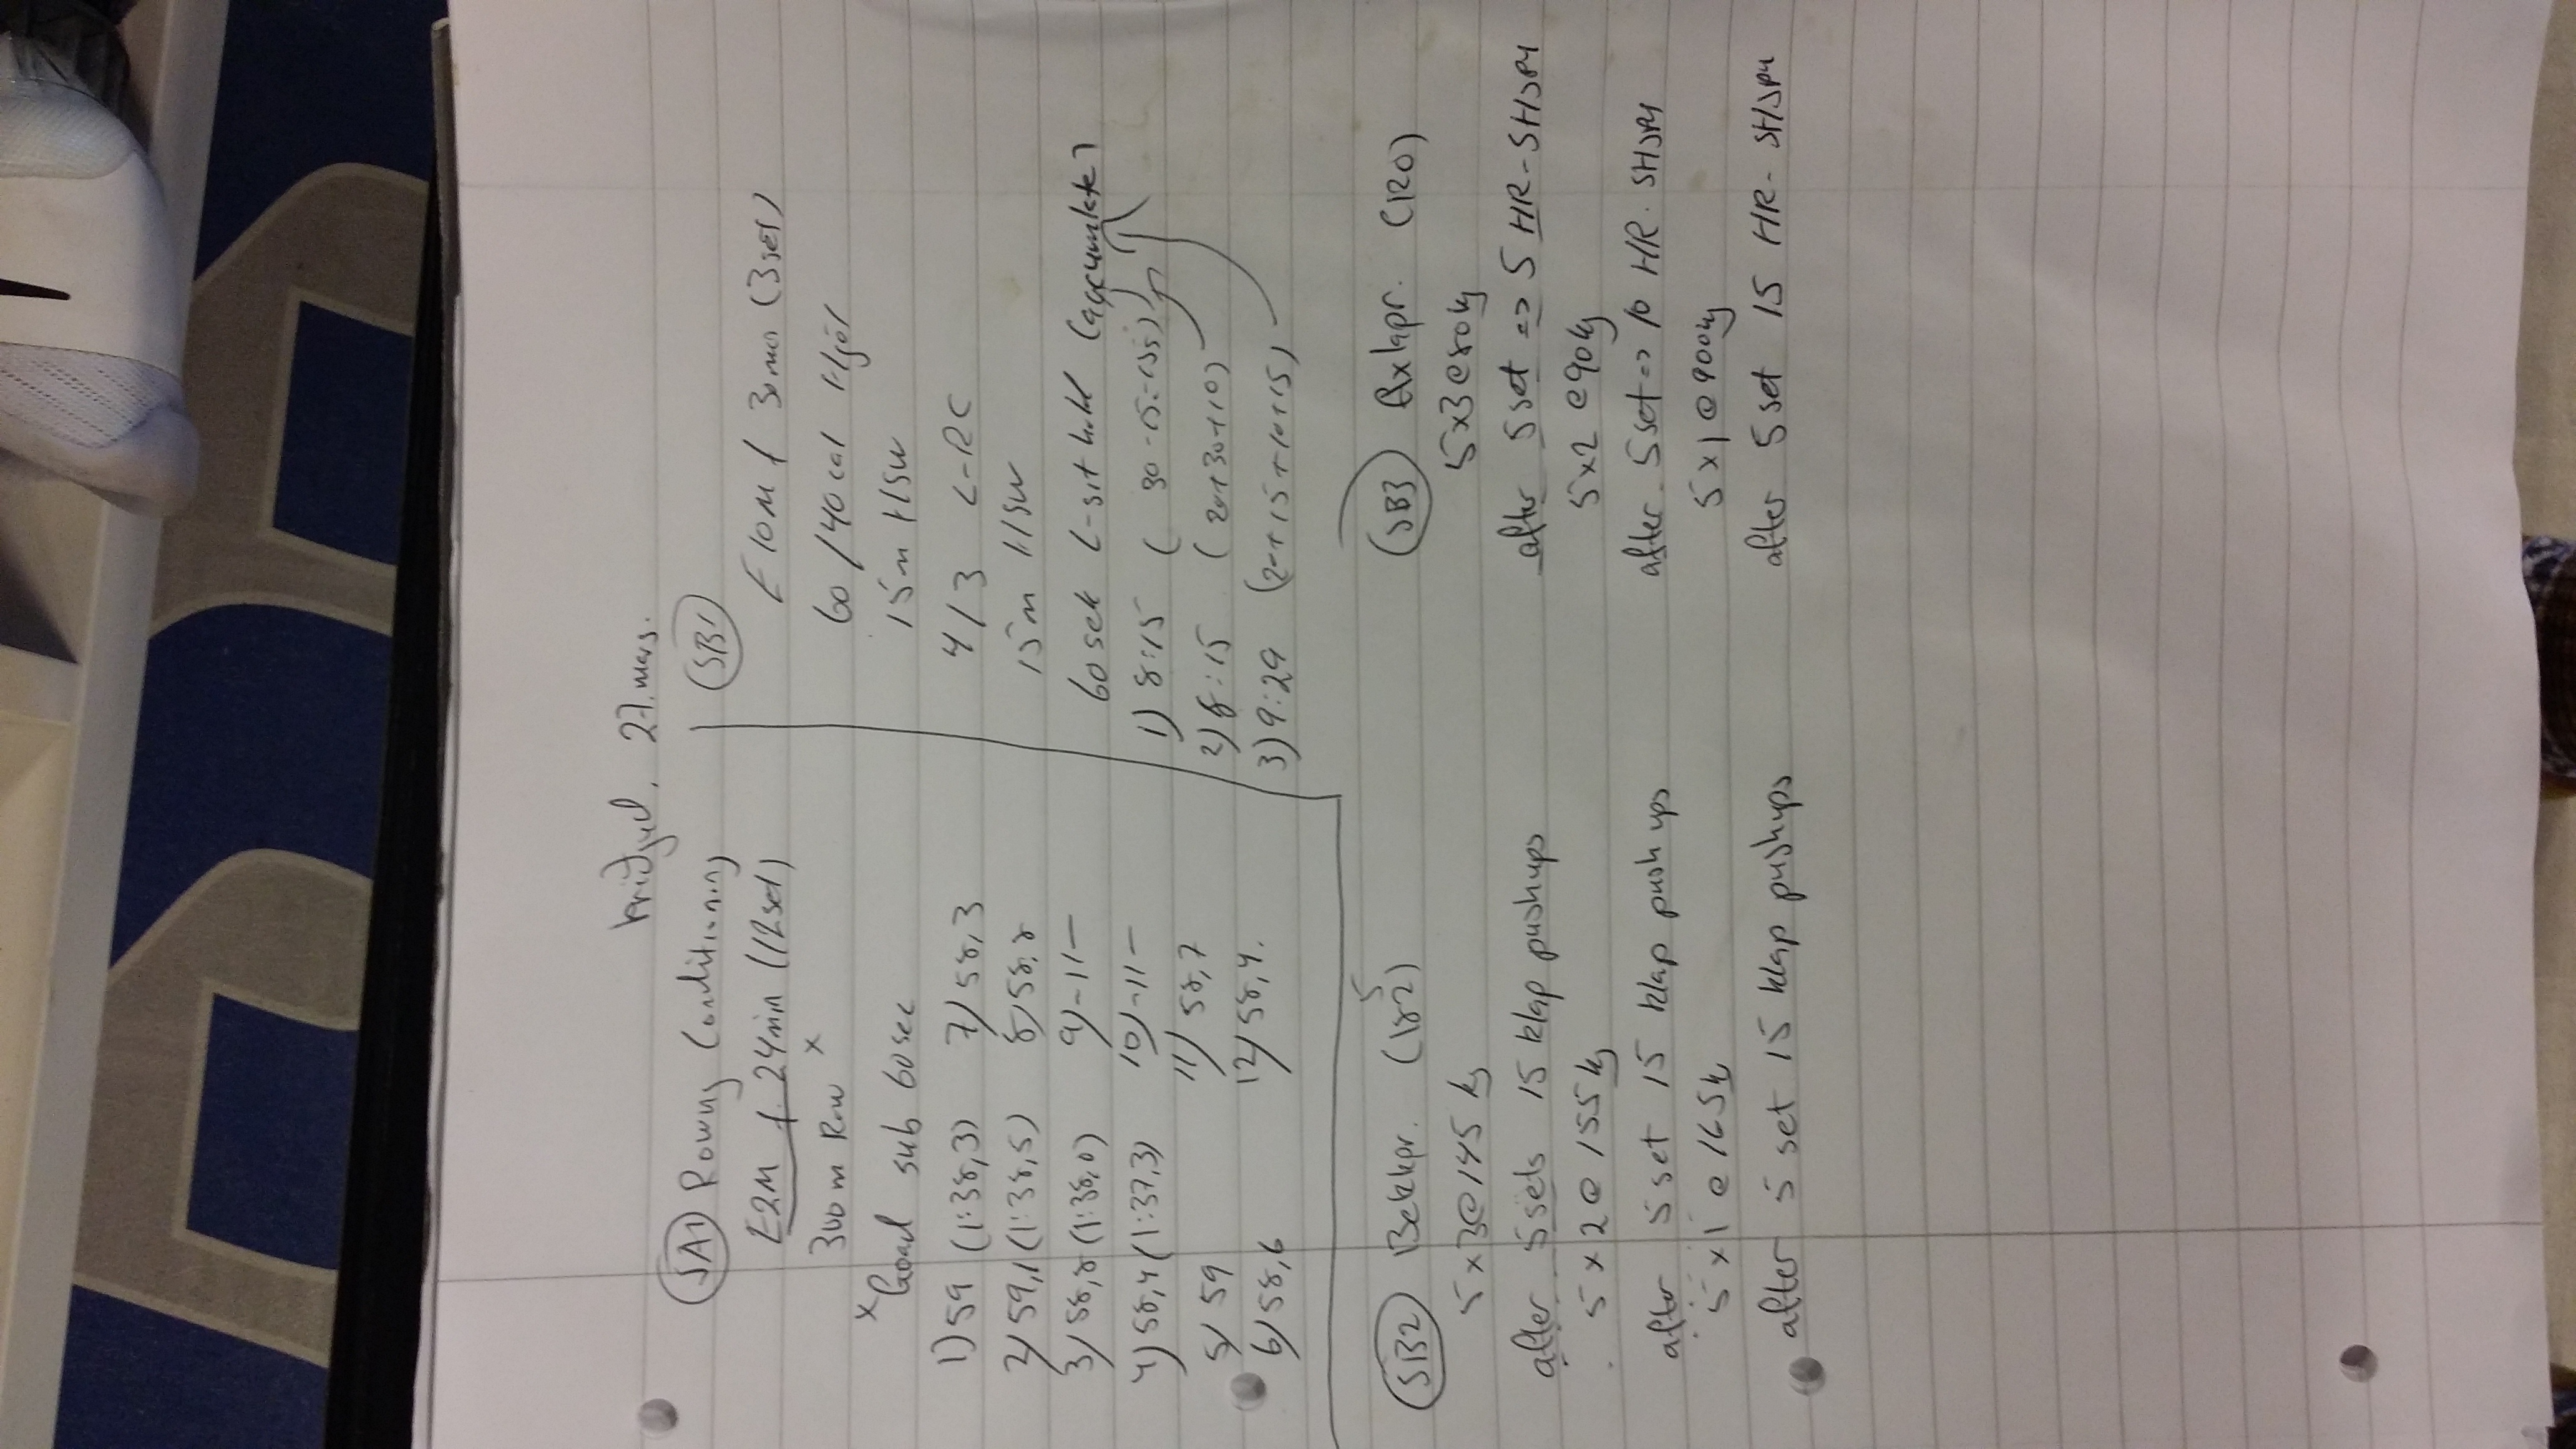 Þriðjud. 27. mars.
SA1 Rowing Conditioning
E2M f. 24min (12set)
300m Row x
x Goal sub 60sec
1) 59 (1:38,3) 7) 58,3
2) 59,1 (1:38,5) 8) 58,8
3) 58,8 (1:38,0) 9) -11-
4) 58,4 (1:37,3) 10) -11-
5) 59 11) 58,7
6) 58,6 12) 58,4.
SB1
E10M f 30mín (3set)
60/40cal Hjól
15m HSW
4/3 L-RC
15m HSW
60sek L-sit hold (accumulate)
1) 8:15 (30-15-15)
2) 8:15 (20+30+10)
3) 9:29 (20+15+10+15)
SB2 Bekkpr. (182) 5
5x3@145kg
after 5sets 15 klap pushups
5x2@155kg
after 5set 15 klap pushups
5x1@165kg
after 5set 15 klap pushups
SB3 Axlapr. (120)
5x3@80kg
after 5set => 5 HR-SHSPU
5x2@90kg
after 5set => 10 HR-SHSPU
5x1@900kg
after 5set 15 HR-SHSPU